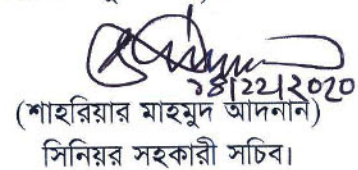 ১৪|১২|২০২০
(শাহরিয়ার মাহমুদ আদনান)
সিনিয়র সহকারী সচিব।